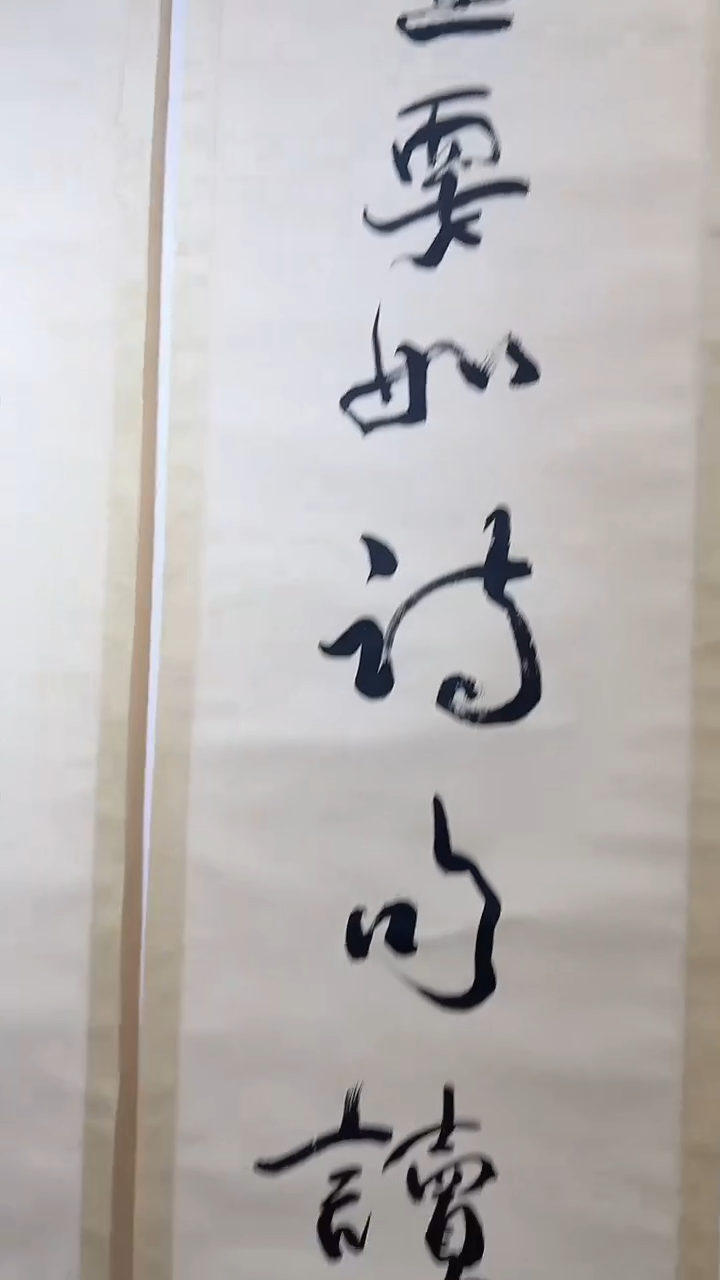 要如詩句讀